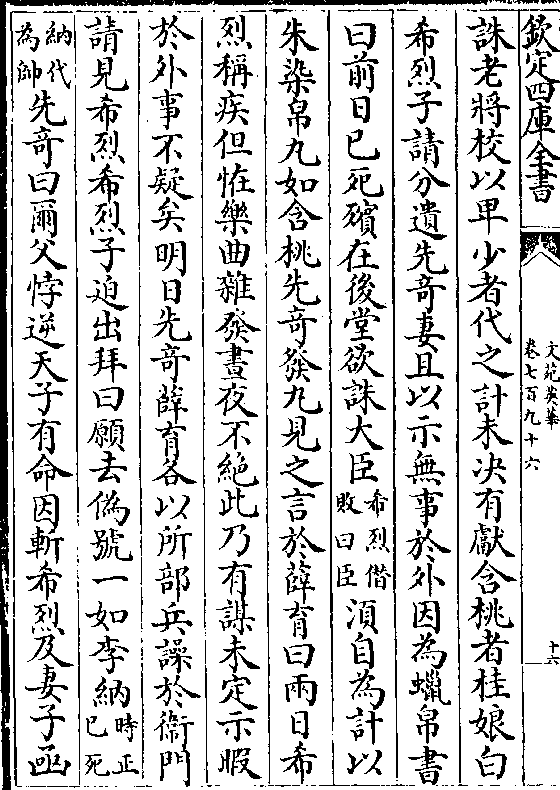 欽定四庫全書
文苑英華
卷七百九十六
十六
誅老將校以卑少者代之計未決有獻含桃者桂娘白
希烈子請分遺先竒妻且以示無事於外因為蠟帛書
曰前日已死殯在後堂欲誅大臣希烈僭敗曰臣須自為計以
朱染帛丸如含桃先竒發丸見之言於薛育曰兩日希
烈稱疾但恠樂曲雜發晝夜不絶此乃有謀未定示暇
於外事不疑矣明日先竒薛育各以所部兵譟於衙門
請見希烈希烈子迫出拜曰願去偽號一如李納時正已死
納代為帥先竒曰爾父悖逆天子有命因斬希烈及妻子函